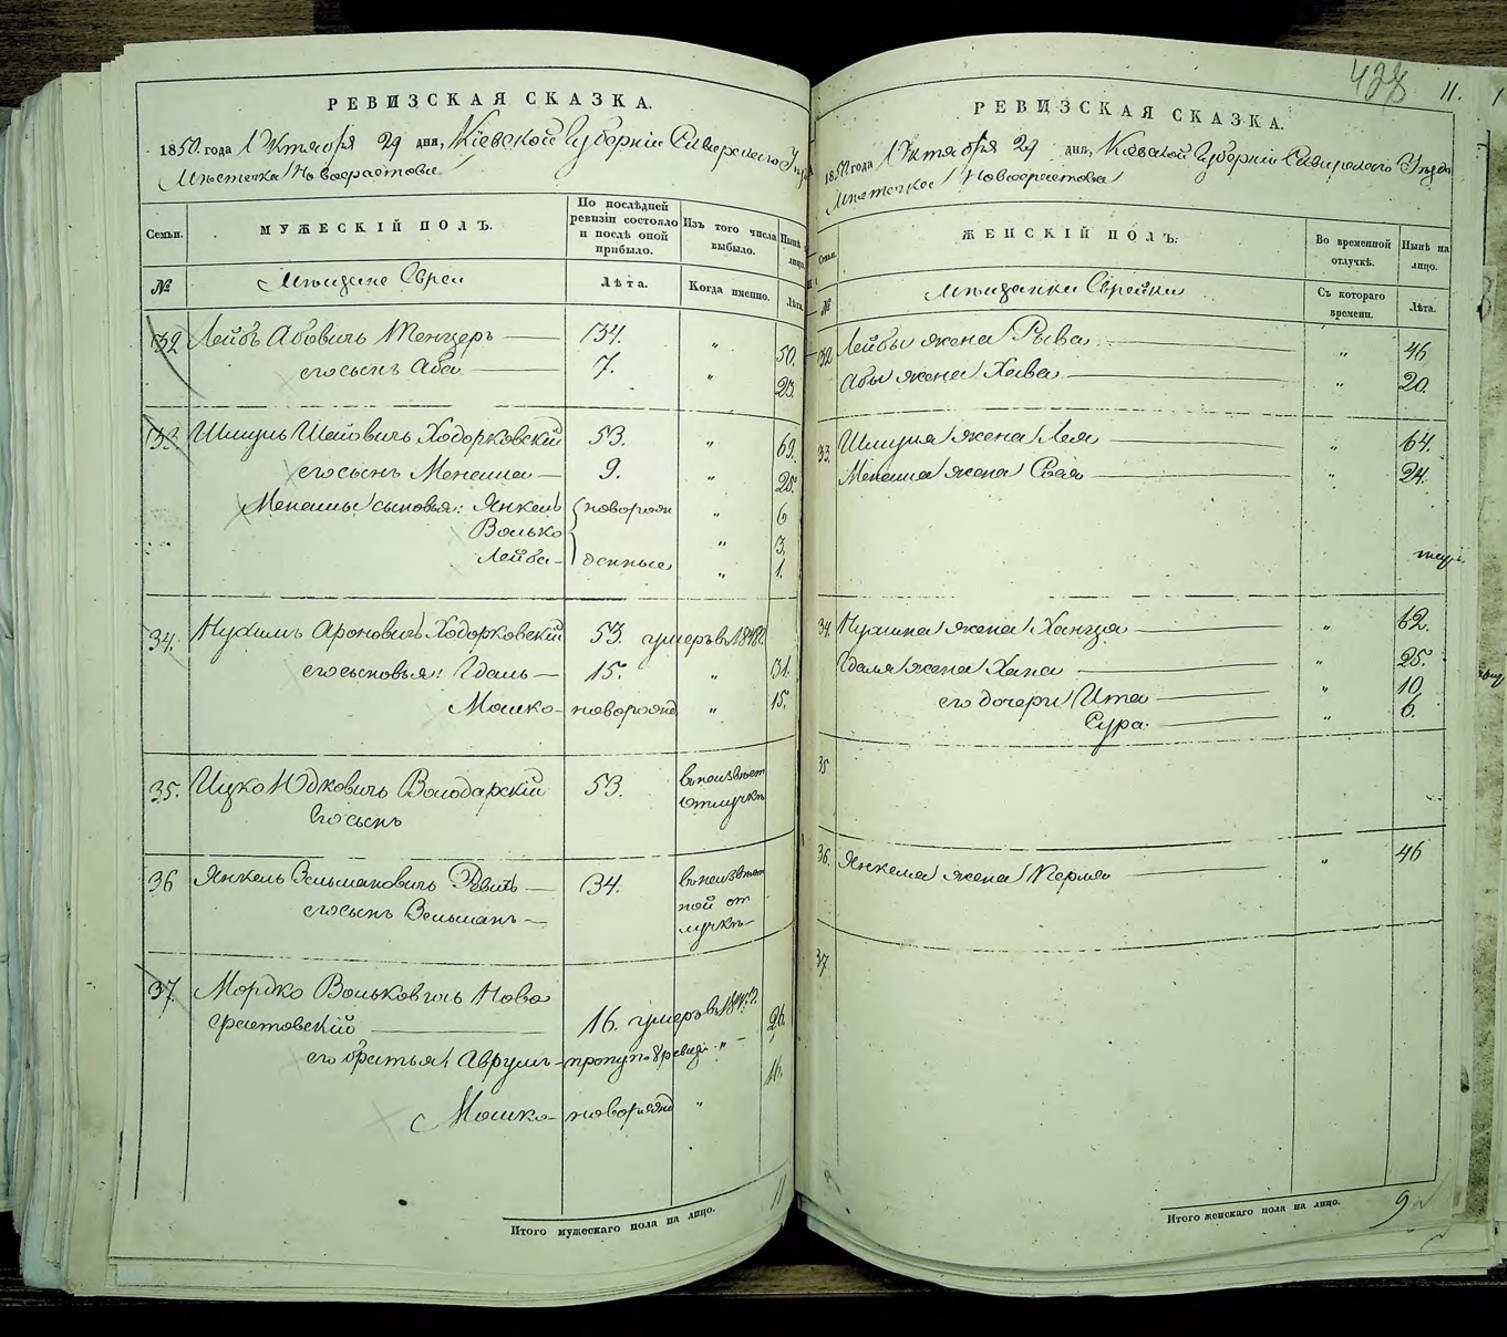 РЕВИЗСКАЯ СКАЗКА.
1850. года Октября 29 дня, Кіевской Губерніи Сквирского
Мѣстечка Новофастова
Семьи. МУЖЕСКІЙ ПОЛЪ. По послѣдней ревизіи состояло и послѣ оной прибыло. Изъ того числа выбыло. Нынѣ лицо.
№ Мѣщане Евреи Лѣта. Когда именно. Лѣта.
32 Лейбъ Абовичъ Тенцеръ — 34. " 50.
его сынъ Аба — 7. " 23.
33. Шмуль Шаіовичъ Ходорковскій 53. " 69.
его сынъ Менаша — 9. " 25.
Менаши сыновья: Янкель новорож "
6
Волько " 3.
Лейба — денные " 1.
34. Нухимъ Ароновичъ Ходорковскій 53. умеръ въ
его сыновья: Гдаль — 15. " 31.
Мошко — новорожд " 15.
35. Ицко Юдковичъ Володарскій 53. въ неизвѣст
Его сынъ отлучкѣ
36 Янкель Зельмановичъ — 34. въ неизвѣст
его сынъ Зельманъ — ной от
лучкѣ —
37. Мордко Вольковичъ Ново
фастовскій — 16. умеръ въ 26.
его братья: Аврумъ — "
Мошко — новорожд " 16.
Итого мужескаго пола на лицо. 11
428 11.
РЕВИЗСКАЯ СКАЗКА.
1850 года Октября 29 дня, Кіевской Губерніи Сквирского Уѣзда
Мѣстечка Новофастова
Семьи. ЖЕНСКІЙ ПОЛЪ. Во временной отлучкѣ. Нынѣ на лицо.
№ Мѣщанки Еврейки Съ котораго времени. Лѣта.
32 Лейбы жена Рыва — " 46
Абы жена Хава — " 20.
33. Шмуля жена Лея — " 64.
Менаша жена — " 24.
34. Нухима жена Ханця — " 62.
Гдаля жена Хана — " 25.
его дочери Ита — " 10.
Сура. — " 6.
35
36. Янкеля жена Перля — " 46
37
Итого женскаго пола на лицо. 9